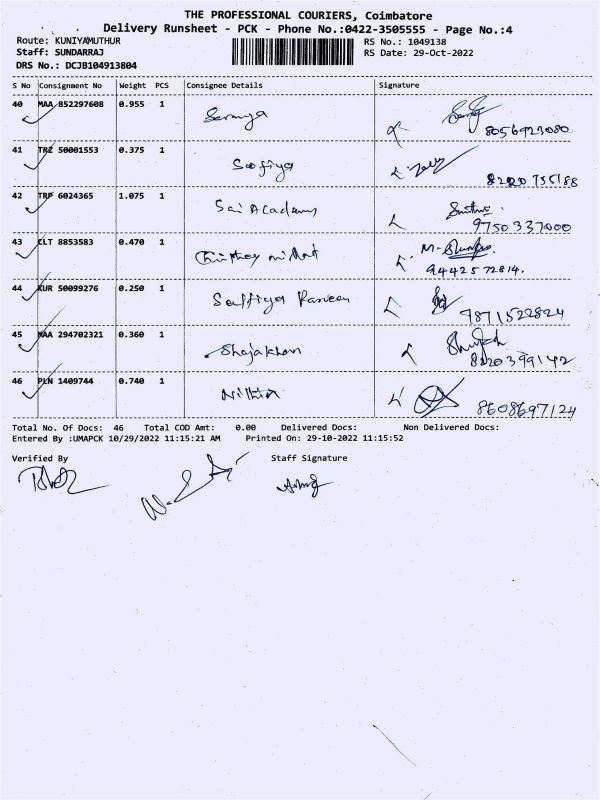 THE PROFESSIONAL COURIERS, Coimbatore
Delivery Runsheet - PCK - Phone No.:0422-3505555 - Page No.:4
Route: KUNIYAMUTHUR
Staff: SUNDARRAJ
DRS No.: DCJB104913804
RS No.: 1049138
RS Date: 29-Oct-2022
S No Consignment No Weight PCS Consignee Details Signature
40 MAA 852297608 0.955 1 Saranya
8056923080
41 TRZ 50001553 0.375 1 Soofiya
8220 755188
42 TRP 6024365 1.075 1 Sai Academy
9750337000
43 CLT 8853583 0.470 1
9442572814.
44 KUR 50099276 0.250 1 Saffiya Parveen
9871522824
45 MAA 294702321 0.360 1 Shajakhan
8220399142
46 PLN 1409744 0.740 1 Nithin
8608697124
Total No. Of Docs: 46 Total COD Amt: 0.00 Delivered Docs: Non Delivered Docs:
Entered By :UMAPCK 10/29/2022 11:15:21 AM Printed On: 29-10-2022 11:15:52
Verified By Staff Signature